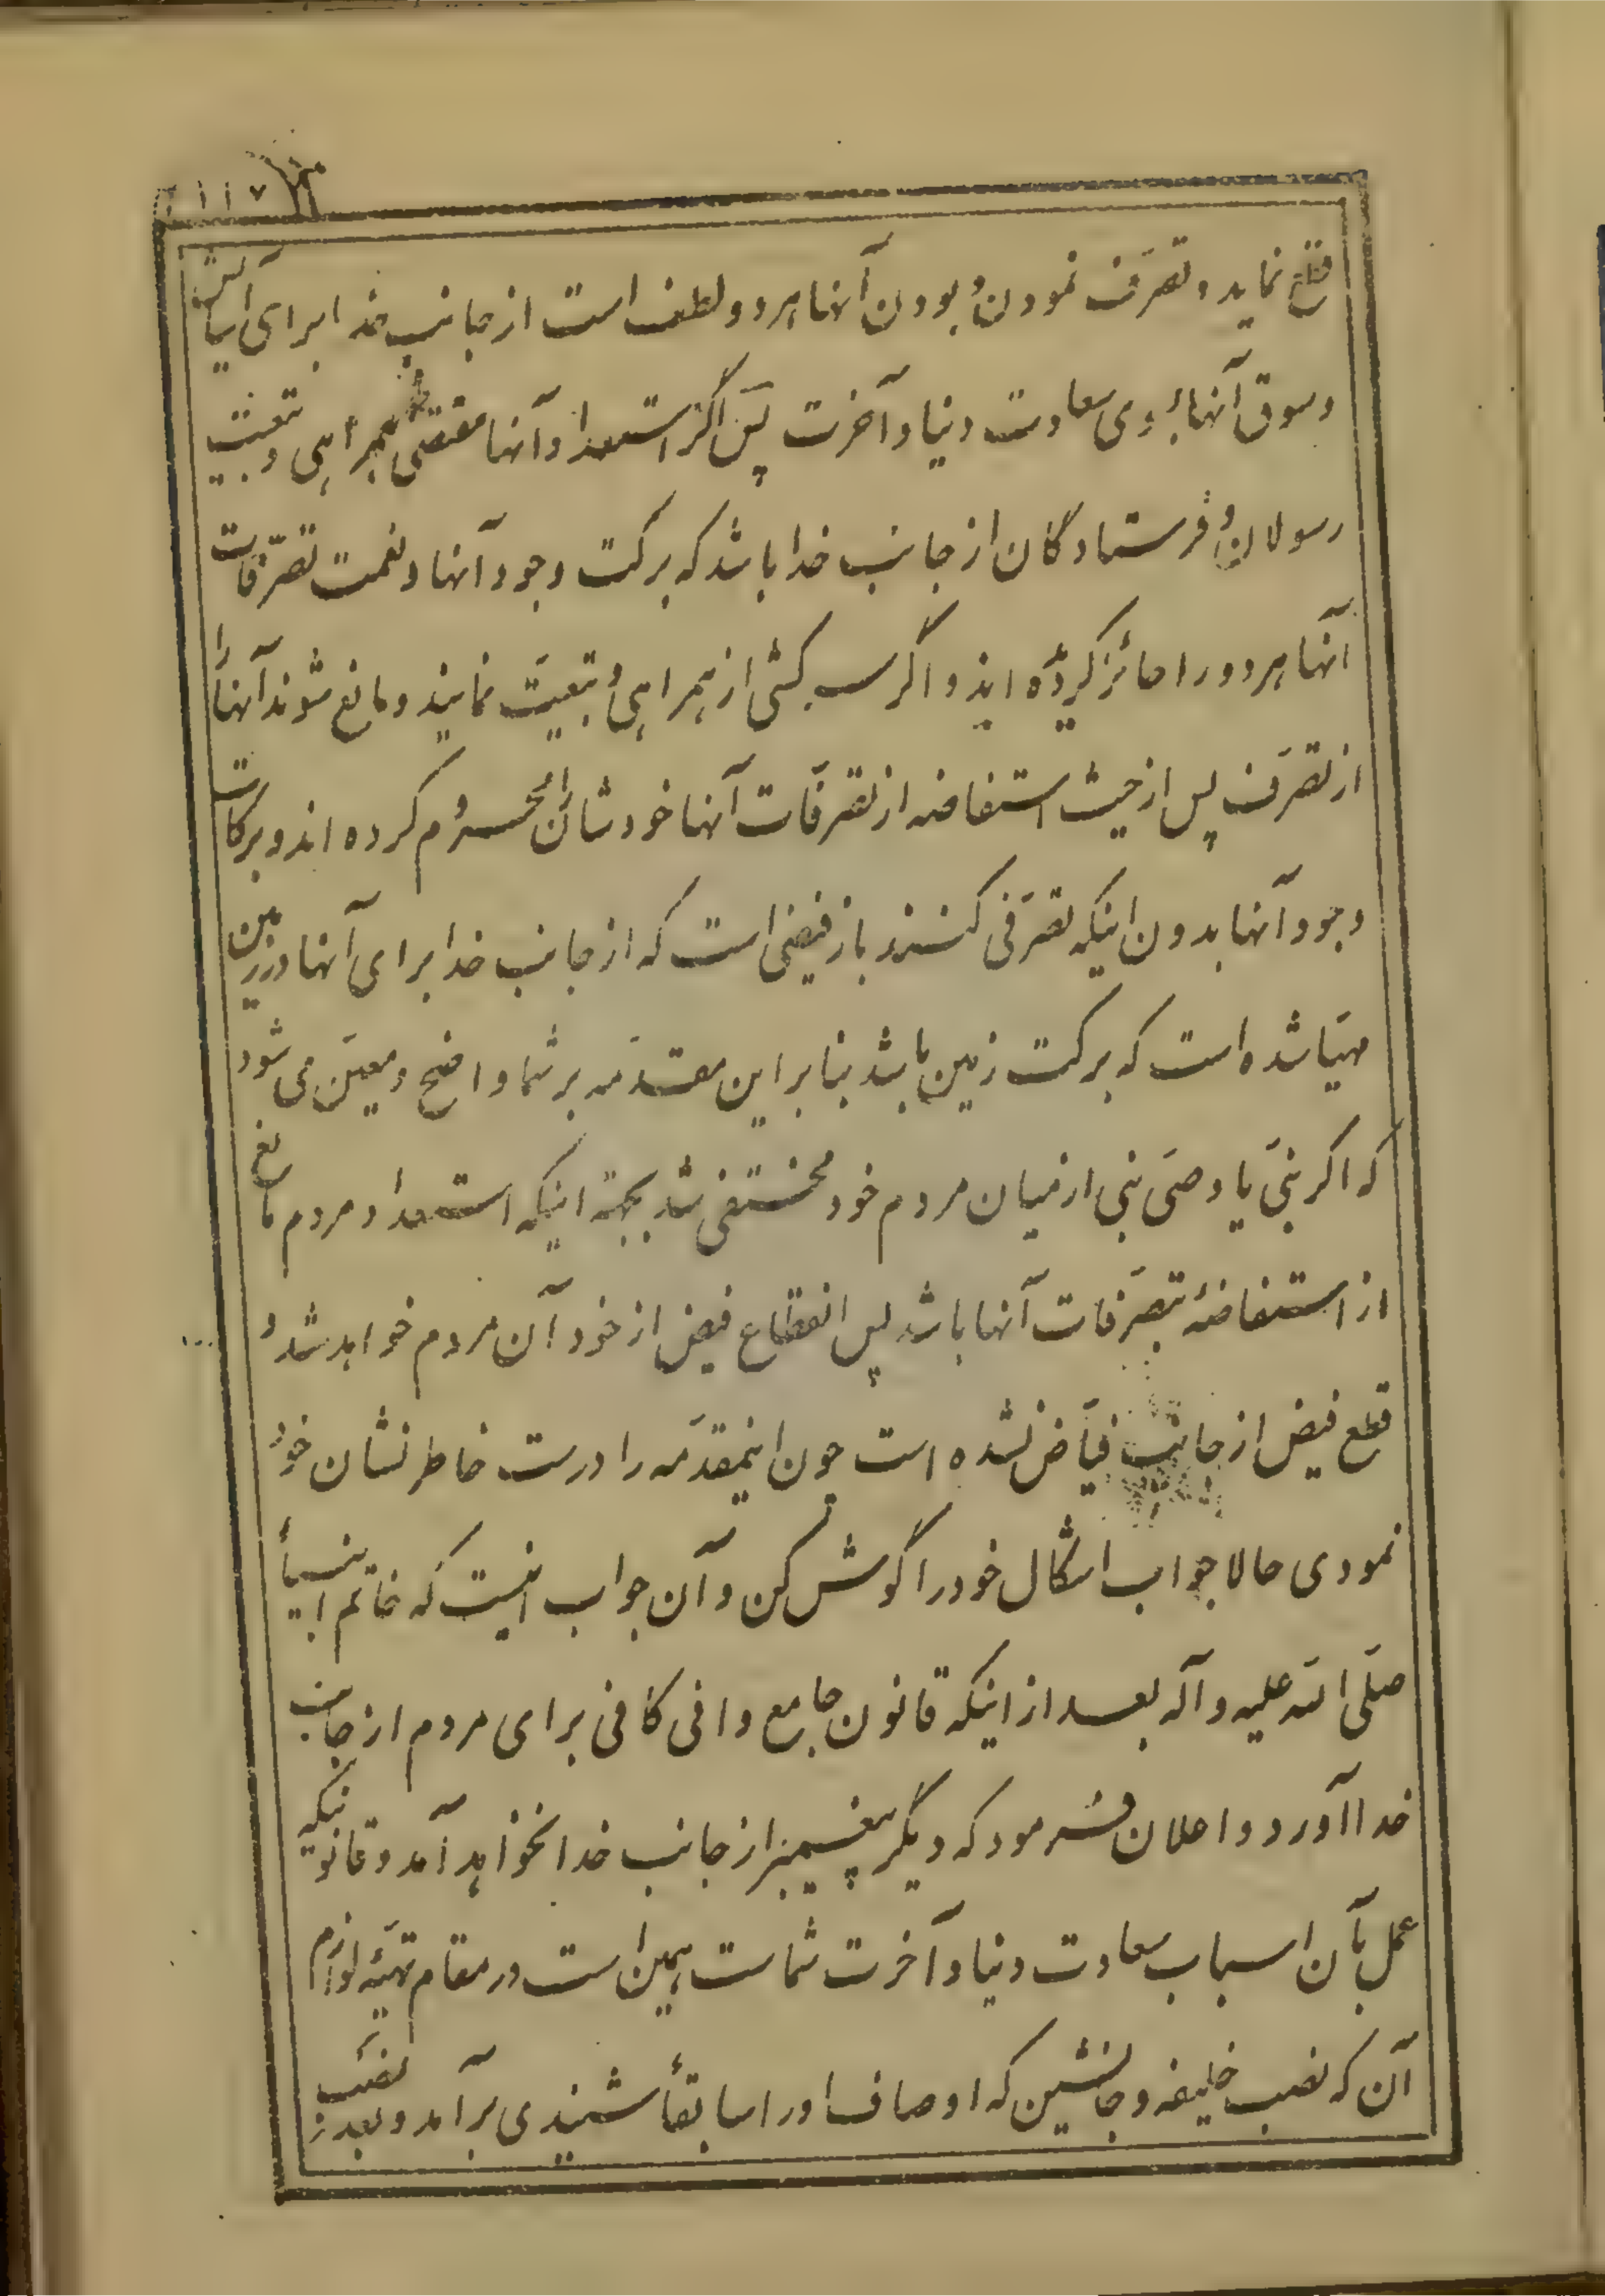 ۱۱۷
نماید و تصرّف نمودن و بودن آنها هر دو لطف است از جانب خدا برای
و سوق آنها بسوی سعادت دنیا و آخرت پس اگر استعداد آنها مقتضی همراهی و تبعیّت
رسولان و فرستادگان از جانب خدا باشد که برکت وجود آنها و نعمت تصرّفات
آنها هر دو را حائز کردیده اند و اگر سرکشی از همراهی و تبعیّت نمایند و مانع شوند آنها را
از تصرّف پس از حیث استفاضه از تصرّفات آنها خودشان را محروم کرده اند و برکات
وجود آنها بدون اینکه تصرّفی کنند باز فیضی است که از جانب خدا برای آنها در زمین
مهیّا شده است که برکت زمین باشد بنا بر این مقدّمه بر شما واضح و معیّن می شود
که اگر نبیّ یا وصیّ نبی از میان مردم خود مختفی شد بجهة اینکه استعداد مردم مانع
از استفاضهٔ بتصرّفات آنها باشد پس انقطاع فیض از خود آن مردم خواهد شد و
قطع فیض از جانب فیّاض نشده است چون اینمقدّمه را درست خاطر نشان خود
نمودی حالا جواب اشکال خود را گوش کن و آن جواب اینست که خاتم انبیأ
صلّی الله علیه و آله بعد از اینکه قانون جامع وافی کافی برای مردم از جانب
خدا آورد و اعلان فرمود که دیگر پیغمبر از جانب خدا نخواهد آمد و قانونیکه
عمل بآن اسباب سعادت دنیا و آخرت شماست همین است در مقام تهیّهٔ لوازم
آن که نصب خلیفه و جانشین که اوصاف او را سابقأ شنیدی برآمد و بعد نصب